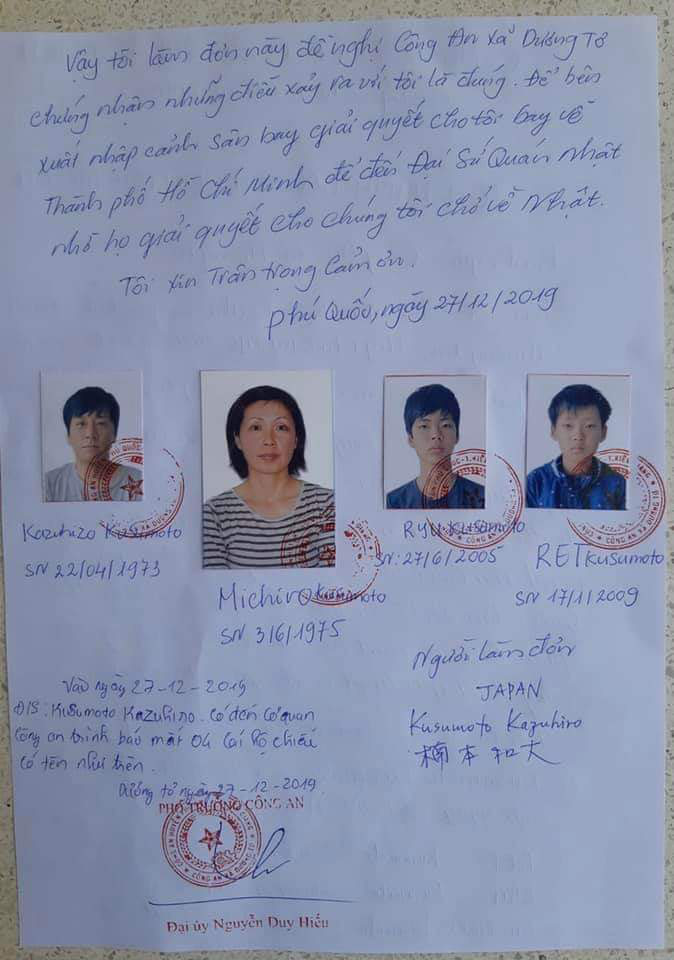 Vậy tôi làm đơn này đề nghị Công An xã Dương Tơ
chứng nhận những điều xảy ra với tôi là đúng. Để bên
xuất nhập cảnh sân bay giải quyết cho tôi bay về
Thành phố Hồ Chí Minh để đến Đại Sứ Quán Nhật
nhờ họ giải quyết cho chúng tôi trở về Nhật.
Tôi xin Trân trọng Cảm ơn.
Phú Quốc, ngày 27/12/2019
Kazuhizo Kusumoto
SN 22/04/1973
Michiro Kusumoto
SN 3/6/1975
RYU Kusumoto
SN: 27/6/2005
RET Kusumoto
SN 17/1/2009
Vào ngày 27-12-2019
Đ/S: Kusumoto Kazuhiro. Có đến cơ quan
Công an trình báo mất 04 cái hộ chiếu
có tên như trên.
Dương tơ ngày 27-12-2019.
PHÓ TRƯỞNG CÔNG AN
Đại úy Nguyễn Duy Hiếu
Người làm đơn
JAPAN
Kusumoto Kazuhiro
楠本和大